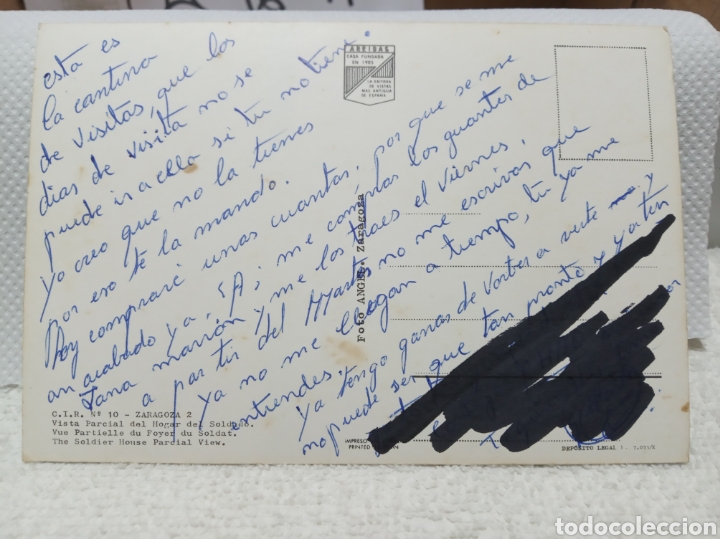 esta es
la cantina
de visitas, que los
dias de visita no se
puede ir a ello si tu no tient.
Yo creo que no la tienes
por eso te la mando.
Hoy compraré unas cuantas, por que se me
an acabado ya. ¡A; me compras los guantes de
lana marrón y me los traes el viernes,
a partir del Martes no me escrivas que
ya no me llegan a tiempo, tu ya me
entiendes.
Ya tengo ganas de volver a verte y
no puede ser que tan pronto y ya ten
ARRIBAS
CASA FUNDADA
EN 1905
LA EDITORA
DE VISTAS
MAS ANTIGUA
DE ESPAÑA
Foto ANGEL. Zaragoza
C.I.R. Nº 10 - ZARAGOZA 2
Vista Parcial del Hogar del Soldado.
Vue Partielle du Foyer du Soldat.
The Soldier House Parcial View.
IMPRESO
PRINTED
DEPÓSITO LEGAL
todocoleccion